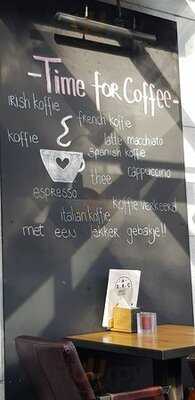 - Time for Coffee -
IRish koffie
french koffie
koffie
latte macchiato
spanish koffie
thee
cappuccino
espresso
koffie verkeerd
italian koffie
met een lekker gebakje!!